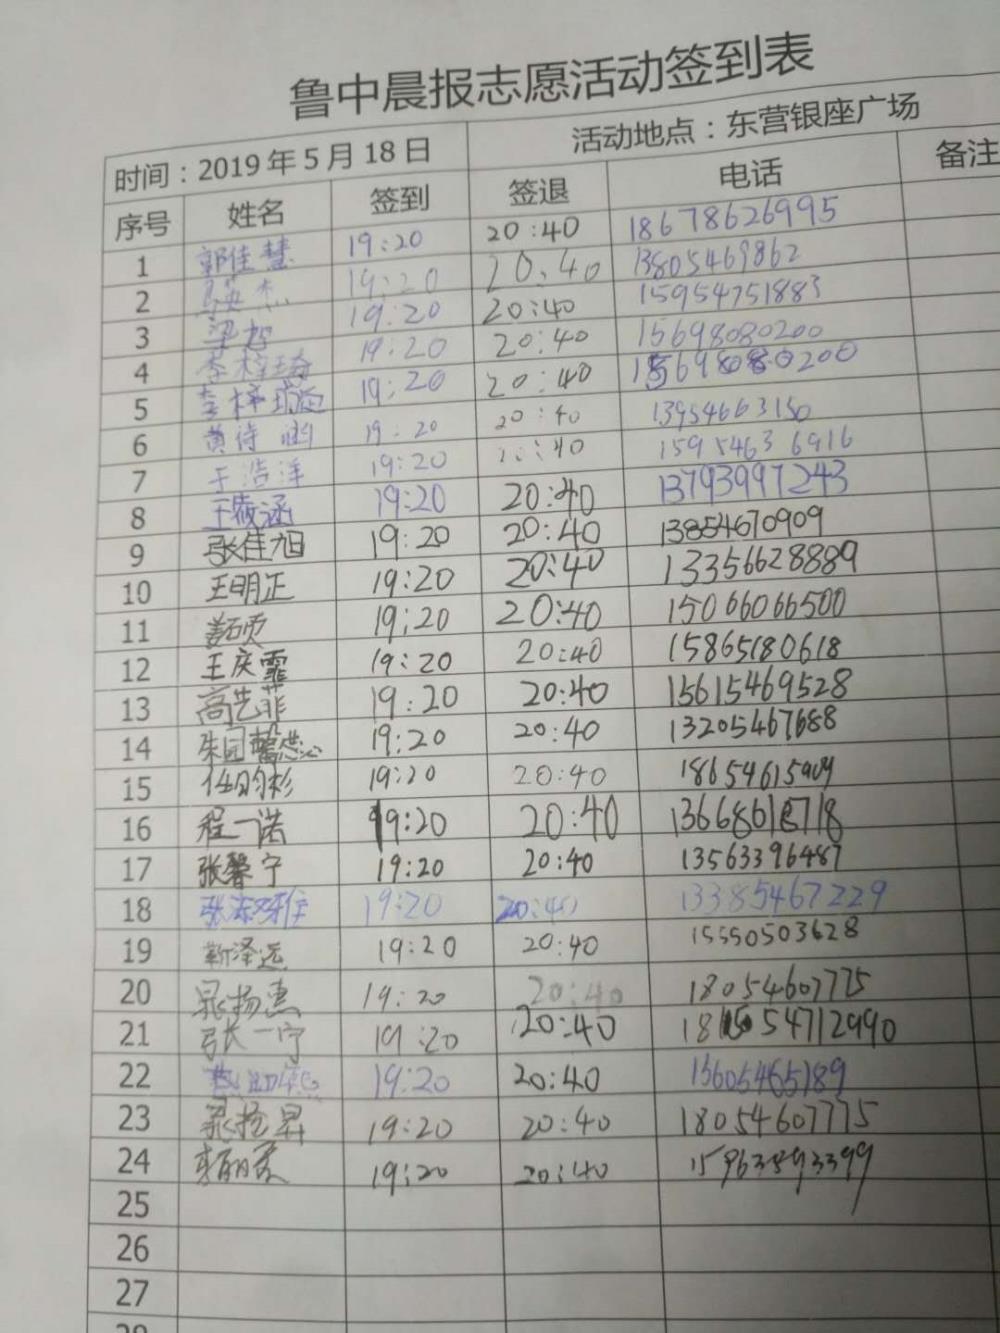 鲁中晨报志愿活动签到表
时间：2019年5月18日 活动地点：东营银座广场
序号 姓名 签到 签退 电话 备注
1 郭佳慧 19:20 20:40 18678626995
2 19:20 20:40 13805469862
3 梁哲 19:20 20:40 15954751883
4 李梓琦 19:20 20:40 15698080200
5 李梓 19:20 20:40 15698080200
6 黄诗涵 19:20 20:40 13954663150
7 于浩洋 19:20 20:40 15954636916
8 王筱涵 19:20 20:40 13793997243
9 张佳旭 19:20 20:40 13854670909
10 王明正 19:20 20:40 13356628889
11 姜硕 19:20 20:40 15066066500
12 王庆霏 19:20 20:40 15865180618
13 高艺菲 19:20 20:40 15615469528
14 朱园馨 19:20 20:40 13205467688
15 任昀杉 19:20 20:40 18654615909
16 程一诺 19:20 20:40 13668618718
17 张馨宁 19:20 20:40 13563396487
18 张 雅 19:20 20:40 13385467229
19 靳泽远 19:20 20:40 15550503628
20 晁扬惠 19:20 20:40 18054607775
21 张一宁 19:20 20:40 54712990
22 19:20 20:40 13605465189
23 晁扬昇 19:20 20:40 18054607775
24 19:20 20:40
25
26
27
28